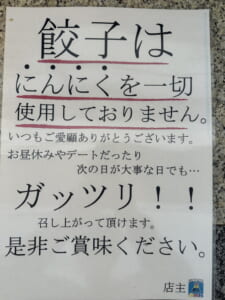 餃子は
にんにくを一切
使用しておりません。
いつもご愛顧ありがとうございます。
お昼休みやデートだったり
次の日が大事な日でも…
ガッツリ！！
召し上がって頂けます。
是非ご賞味ください。
店主